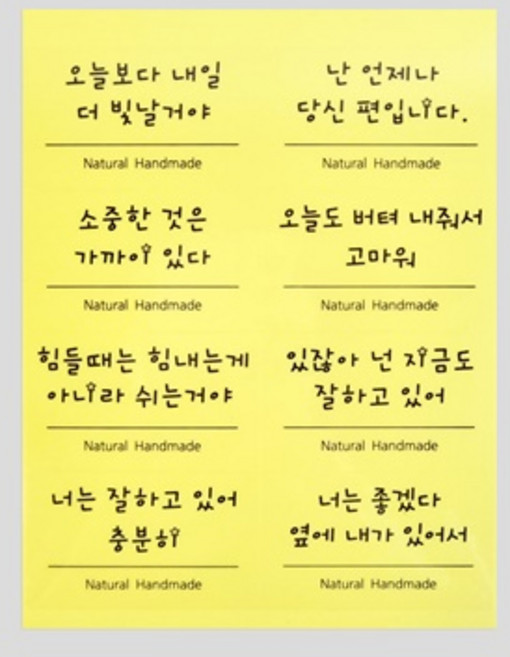 오늘보다 내일
더 빛날거야
Natural Handmade
난 언제나
당신 편입니다.
Natural Handmade
소중한 것은
가까이 있다
Natural Handmade
오늘도 버텨 내줘서
고마워
Natural Handmade
힘들때는 힘내는게
아니라 쉬는거야
Natural Handmade
있잖아 넌 지금도
잘하고 있어
Natural Handmade
너는 잘하고 있어
충분히
Natural Handmade
너는 좋겠다
옆에 내가 있어서
Natural Handmade